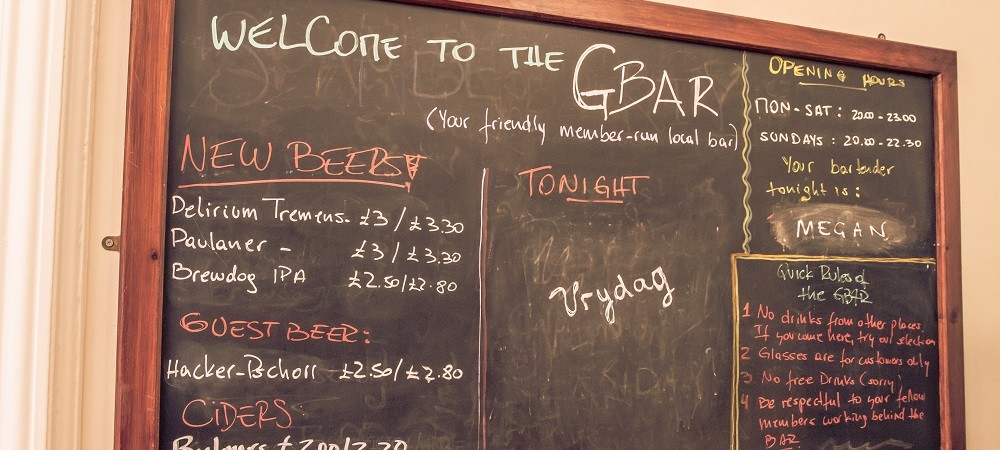 WELCOME TO THE GBAR
(Your friendly member-run local bar)
NEW BEERS
Delirium Tremens - £3 / £3.30
Paulaner - £3 / £3.30
Brewdog IPA £2.50/£2.80
GUEST BEER:
Hacker-Pschorr £2.50/£2.80
CIDERS
Bulmers £2.00/2.20
TONIGHT
Vrydag
OPENING HOURS
MON-SAT: 20.00-23.00
SUNDAYS: 20.00-22.30
Your bartender
tonight is:
MEGAN
Quick Rules of
the GBAR
1 No drinks from other places.
If you come here, try our selection
2 Glasses are for customers only
3 No free Drinks (sorry)
4 Be respectful to your fellow
members working behind the
BAR